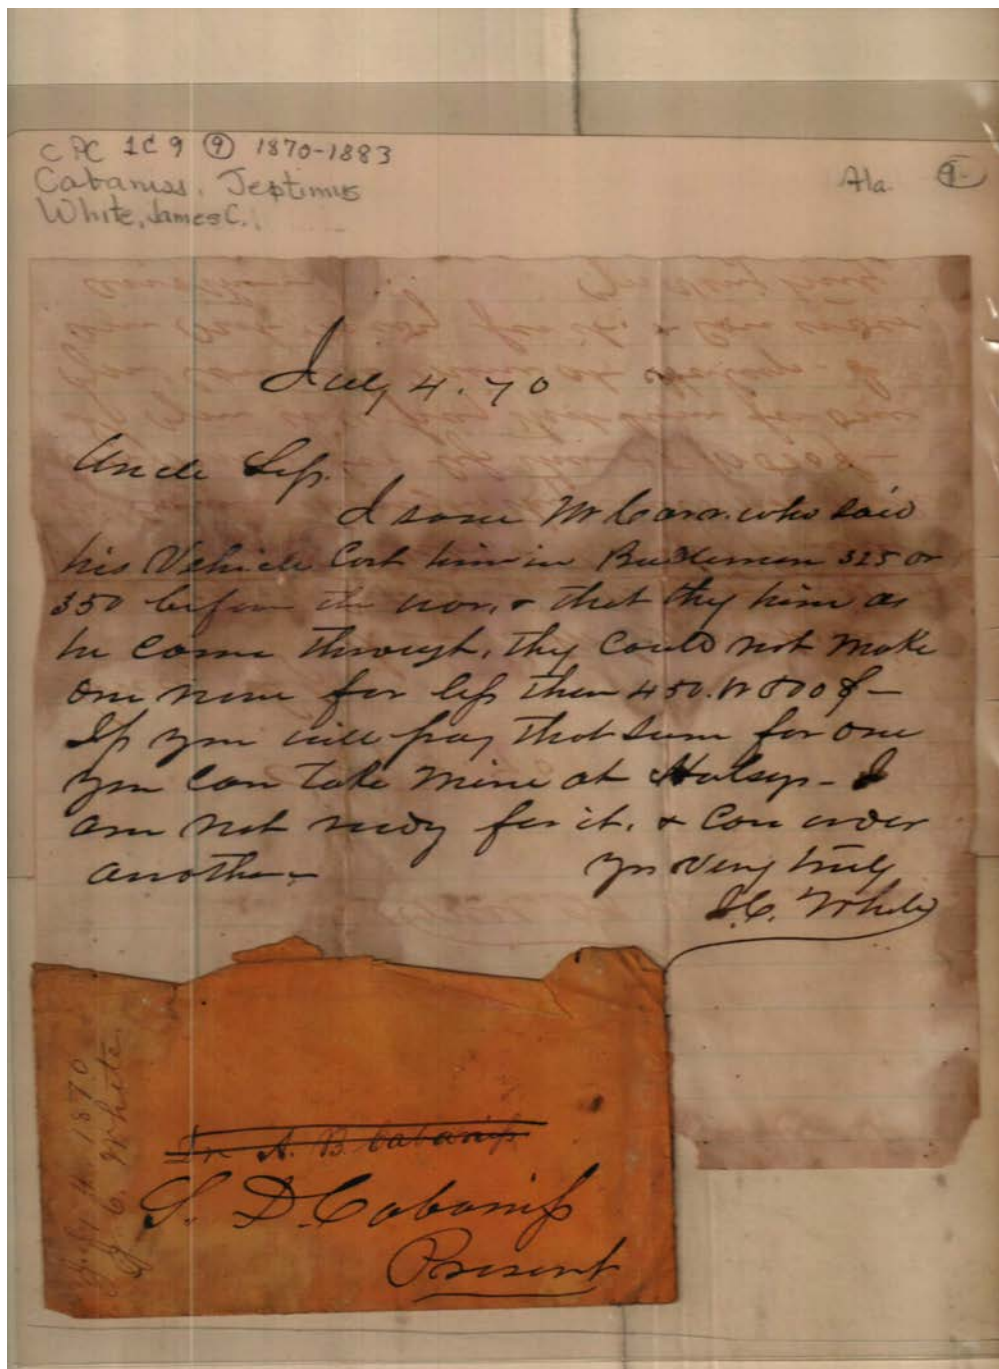 CPC 1C9 ⑨ 1870-1883
Cabaniss, Septimus
White, James C.
Ala. ⑨
July 4. 70
Uncle Sep.
I saw Mr Carr. who said
his Vehicle Cost him in 325 or
350 before the war, & that they him as
he came through, they could not make
one now for less then 450. or 500 $ —
If you will pay that sum for one
you can take mine at Halseys - I
am not ready for it. & Can order
another — yrs very truly
J.C. White
July 4th 1870
J. C. White
Dr A. B. Cabaniss
S. D. Cabaniss
Present